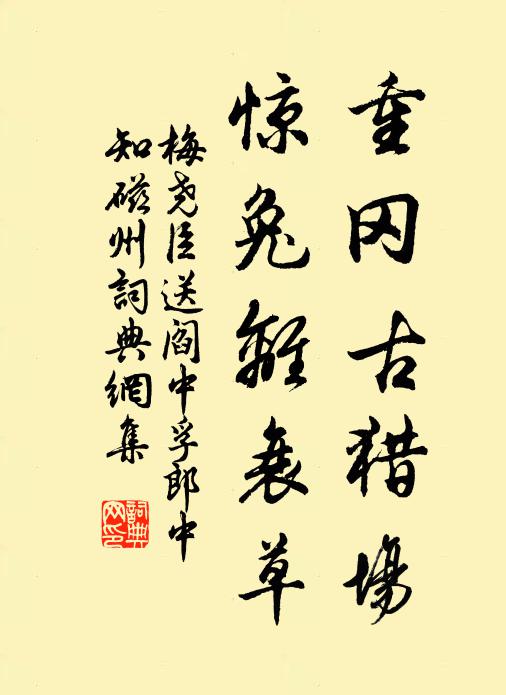 重冈古猎场
惊兔离衰草
梅尧臣送阎中孚郎中
知磁州詞典網集
詞典
网印